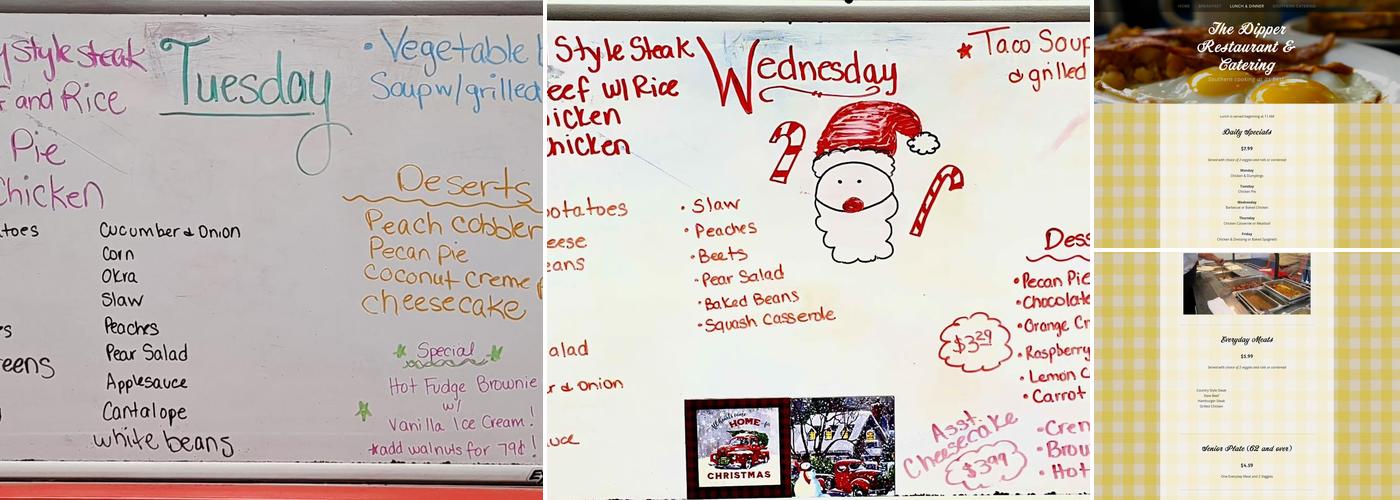 y Style Steak
and Rice
Pie
Chicken
Tuesday
• Vegetable
Soup w/grilled
Deserts
Peach cobbler
Pecan Pie
Coconut Creme
Cheesecake
toes
Cucumber & Onion
Corn
Okra
Slaw
Peaches
Pear Salad
Applesauce
Cantalope
white beans
eens
Special
Hot Fudge Brownie
w/
Vanilla Ice Cream!
*add walnuts for 79¢!
Style Steak
eef w/ Rice
icken
hicken
Wednesday
Taco Soup
& grilled
potatoes
eese
eans
alad
r & Onion
uce
• Slaw
• Peaches
• Beets
• Pear Salad
• Baked Beans
• Squash Casserole
Dess
• Pecan Pie
• Chocolate
• Orange Cr
• Raspberry
• Lemon C
• Carrot
$3.29
Asst.
Cheesecake
$3.99
• Crem
• Brow
• Hot
HOME
CHRISTMAS
HOME BREAKFAST LUNCH & DINNER SOUTHERN CATERING
The Dipper
Restaurant &
Catering
Southern cooking at its best
Lunch is served beginning at 11 AM
Daily Specials
$7.99
Served with choice of 2 veggies and rolls or cornbread
Monday
Chicken & Dumplings
Tuesday
Chicken Pie
Wednesday
Barbecue or Baked Chicken
Thursday
Chicken Casserole or Meatloaf
Friday
Chicken & Dressing or Baked Spaghetti
Everyday Meats
$5.99
Served with choice of 2 veggies and rolls or cornbread
Country Style Steak
Stew Beef
Hamburger Steak
Grilled Chicken
Senior Plate (62 and over)
$4.59
One Everyday Meat and 2 Veggies